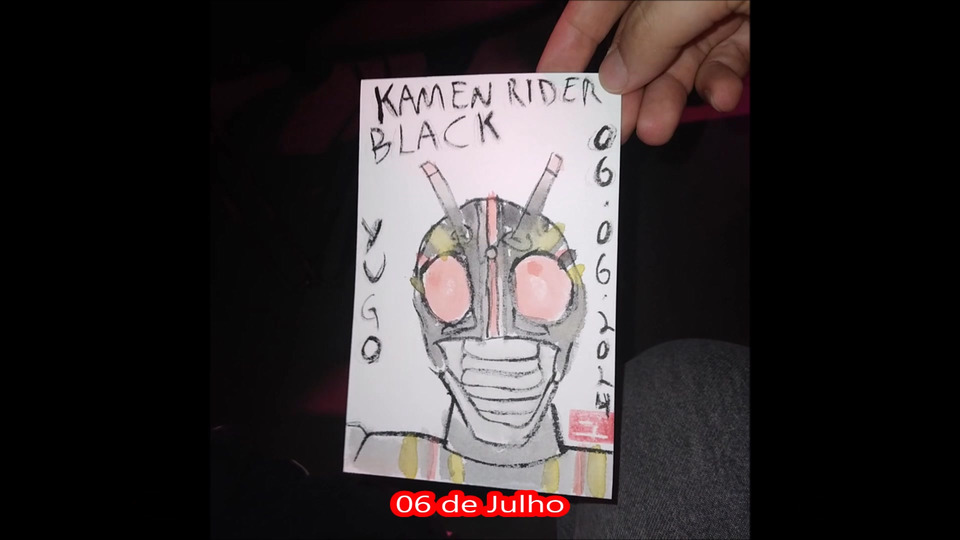 KAMEN RIDER
BLACK
YUGO
06.06.2024
06 de Julho